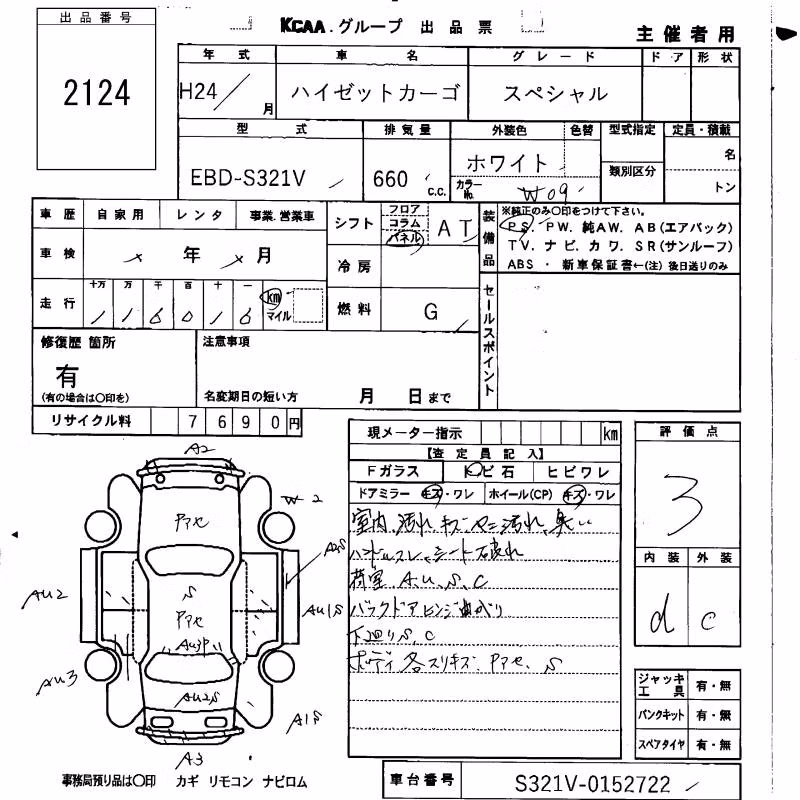 出品番号
2124
KCAA.グループ 出品票
主催者用
年式 車名 グレード ドア 形状
H24/ 月 ハイゼットカーゴ スペシャル
型式 排気量 外装色 色替 型式指定 定員・積載
EBD-S321V 660 c.c. ホワイト 類別区分 名
カラーNo. W09 トン
車歴 自家用 レンタ 事業.営業車
シフト フロア コラム パネル AT
装備品 ※純正のみ○印をつけて下さい。
PS. PW. 純AW. AB(エアバック)
TV. ナビ. カワ. SR(サンルーフ)
ABS ・ 新車保証書←(注) 後日送りのみ
車検 年 月
冷房
走行 十万 万 千 百 十 一
1 1 6 0 1 6 km マイル
燃料 G
セールスポイント
修復歴 箇所
有
(有の場合は○印を)
注意事項
名変期日の短い方 月 日まで
リサイクル料 7690円
現メーター指示 km
評価点
3
【査定員記入】
Fガラス トビ石 ヒビワレ
ドアミラー キズ・ワレ ホイール(CP) キズ・ワレ
室内 汚れ キズ ヤニ汚れ 臭い
ハンドルスレ、シート破れ
荷室 A.U.S.C
バックドアヒンジ曲がり
下廻りS.C
ボディ各スリキズ、Pアセ、S
内装 外装
d c
A2
W2
Pアセ
A2S
S
Pアセ
AU2
AU1S
AU3P
AU3
AU2S
A1S
A3
ジャッキ工具 有・無
パンクキット 有・無
スペアタイヤ 有・無
事務局預り品は○印 カギ リモコン ナビロム
車台番号 S321V-0152722